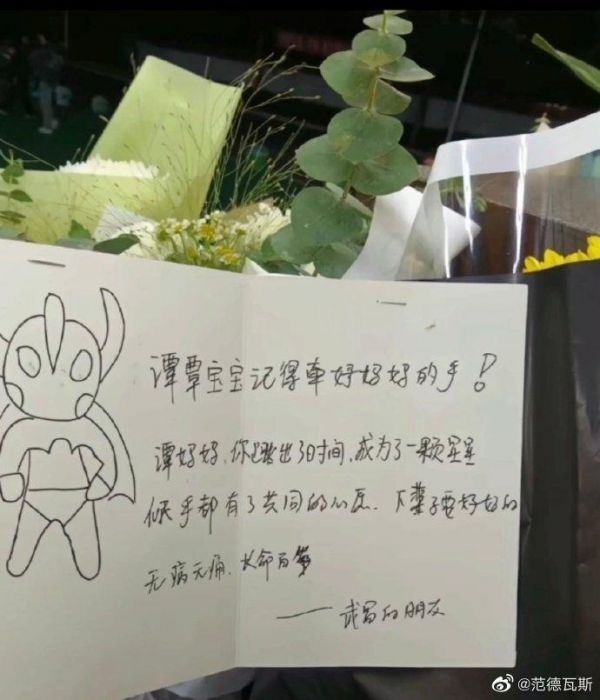 谭覃宝宝记得牵好好好的手！
谭好好，你踏出了时间，成为了一颗星星
似乎都有了共同的心愿．下辈子要好好的
无病无痛．长命百岁
——武昌的朋友
@范德瓦斯